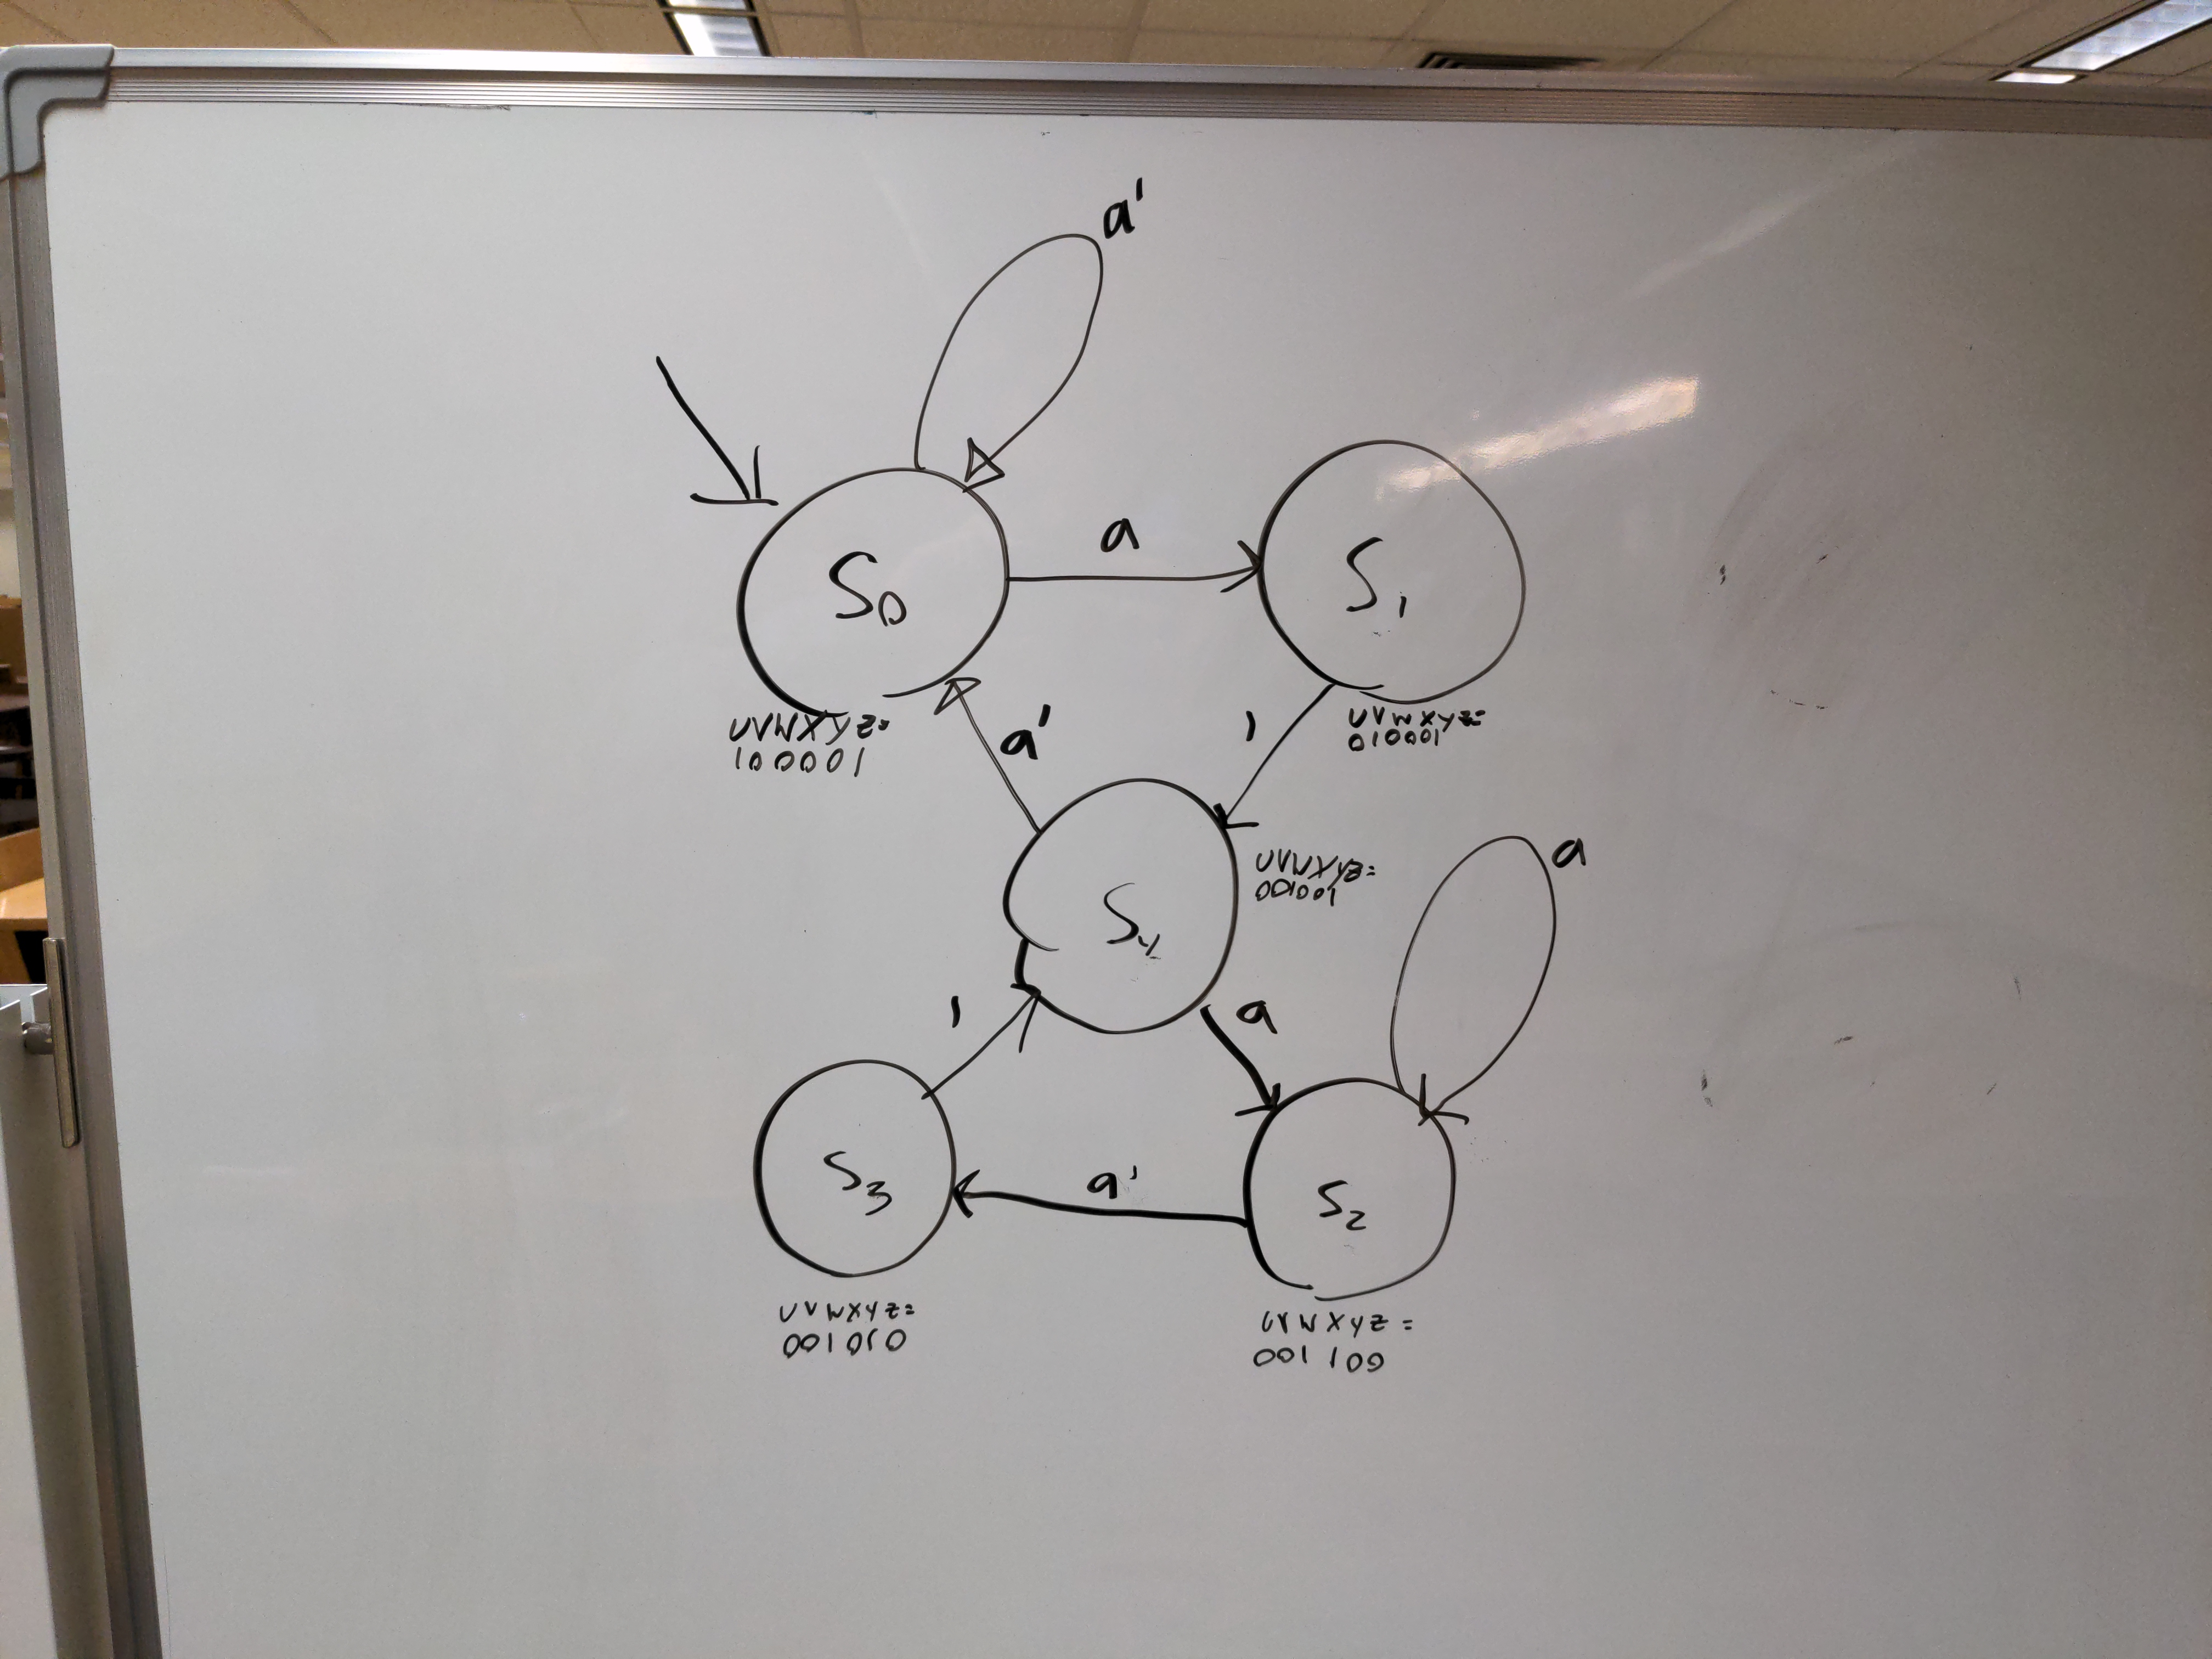 a'
a
S0
S1
UVWXYZ=
100001
a'
1
UVWXYZ=
010001
UVWXYZ=
001001
S4
a
1
a
S3
a'
S2
UVWXYZ=
001010
UVWXYZ=
001100